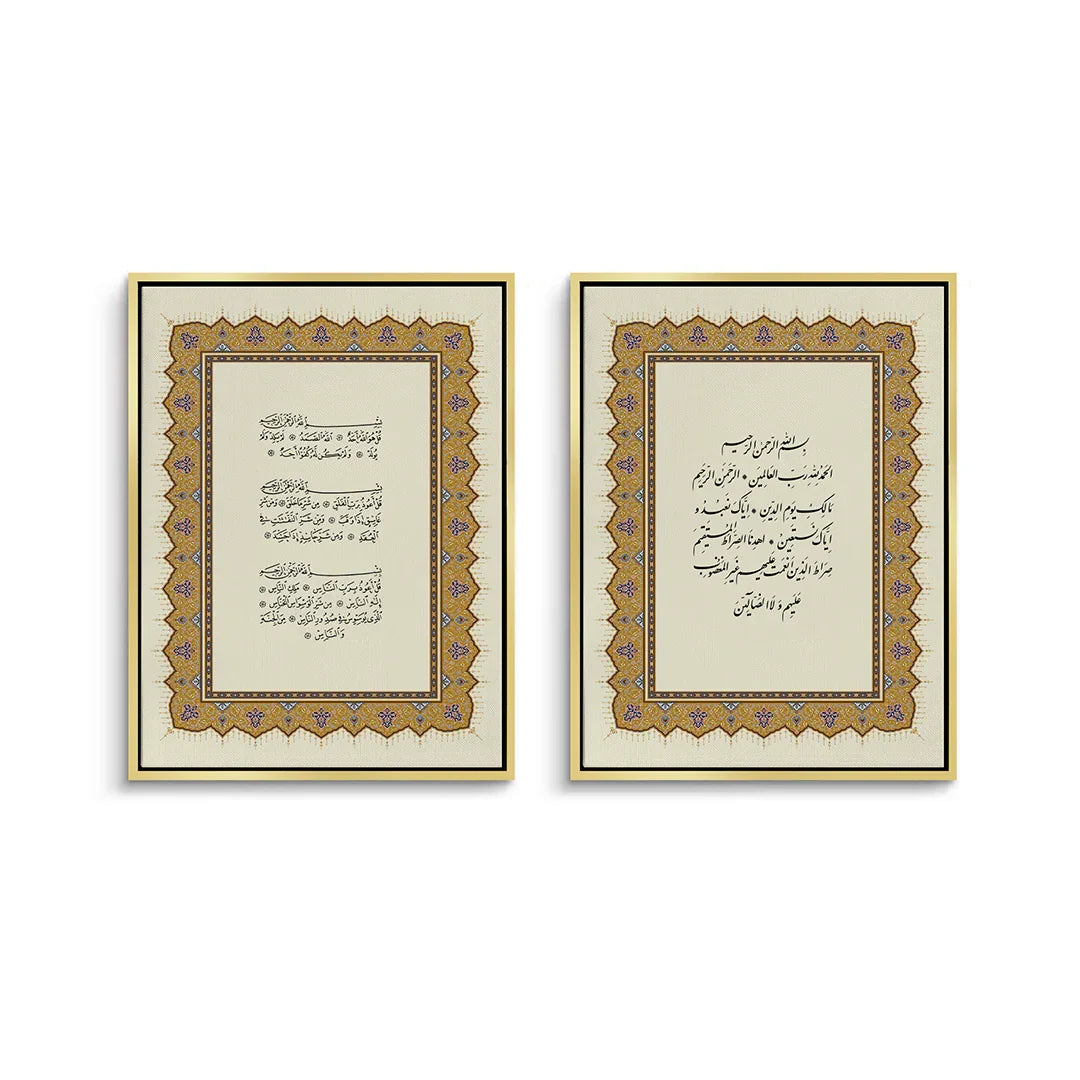 بِسْمِ ٱللَّهِ ٱلرَّحْمَٰنِ ٱلرَّحِيمِ
قُلْ هُوَ ٱللَّهُ أَحَدٌ ۞ ٱللَّهُ ٱلصَّمَدُ ۞ لَمْ يَلِدْ وَلَمْ
يُولَدْ ۞ وَلَمْ يَكُن لَّهُ كُفُوًا أَحَدٌ ۞
بِسْمِ ٱللَّهِ ٱلرَّحْمَٰنِ ٱلرَّحِيمِ
قُلْ أَعُوذُ بِرَبِّ ٱلْفَلَقِ ۞ مِن شَرِّ مَا خَلَقَ ۞ وَمِن شَرِّ
غَاسِقٍ إِذَا وَقَبَ ۞ وَمِن شَرِّ ٱلنَّفَّٰثَٰتِ فِي
ٱلْعُقَدِ ۞ وَمِن شَرِّ حَاسِدٍ إِذَا حَسَدَ ۞
بِسْمِ ٱللَّهِ ٱلرَّحْمَٰنِ ٱلرَّحِيمِ
قُلْ أَعُوذُ بِرَبِّ ٱلنَّاسِ ۞ مَلِكِ ٱلنَّاسِ ۞
إِلَٰهِ ٱلنَّاسِ ۞ مِن شَرِّ ٱلْوَسْوَاسِ ٱلْخَنَّاسِ ۞
ٱلَّذِي يُوَسْوِسُ فِي صُدُورِ ٱلنَّاسِ ۞ مِنَ ٱلْجِنَّةِ
وَٱلنَّاسِ ۞
بسم الله الرحمن الرحیم
الحمد لله رب العالمین * الرحمن الرحیم
مالک یوم الدین * ایاک نعبد و
ایاک نستعین * اهدنا الصراط المستقیم
صراط الذین انعمت علیهم غیر المغضوب
علیهم و لا الضالین